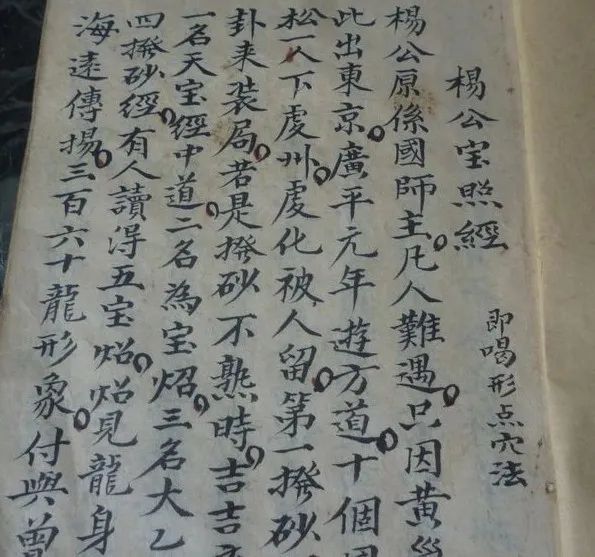 楊公宝照經
即喝形点穴法
楊公原係國師主。凡人難遇。只因黄
此出東京。廣平元年遊方道。十個
松一人下虔州。虔化被人留。第一撥砂
卦来装局。若是撥砂不熟時。吉吉
一名天宝經中道。二名為宝炤。三名大乙
四撥砂經。有人讀得五宝炤。炤見龍身
海遠傳揚。三百六十龍形象。付與曽